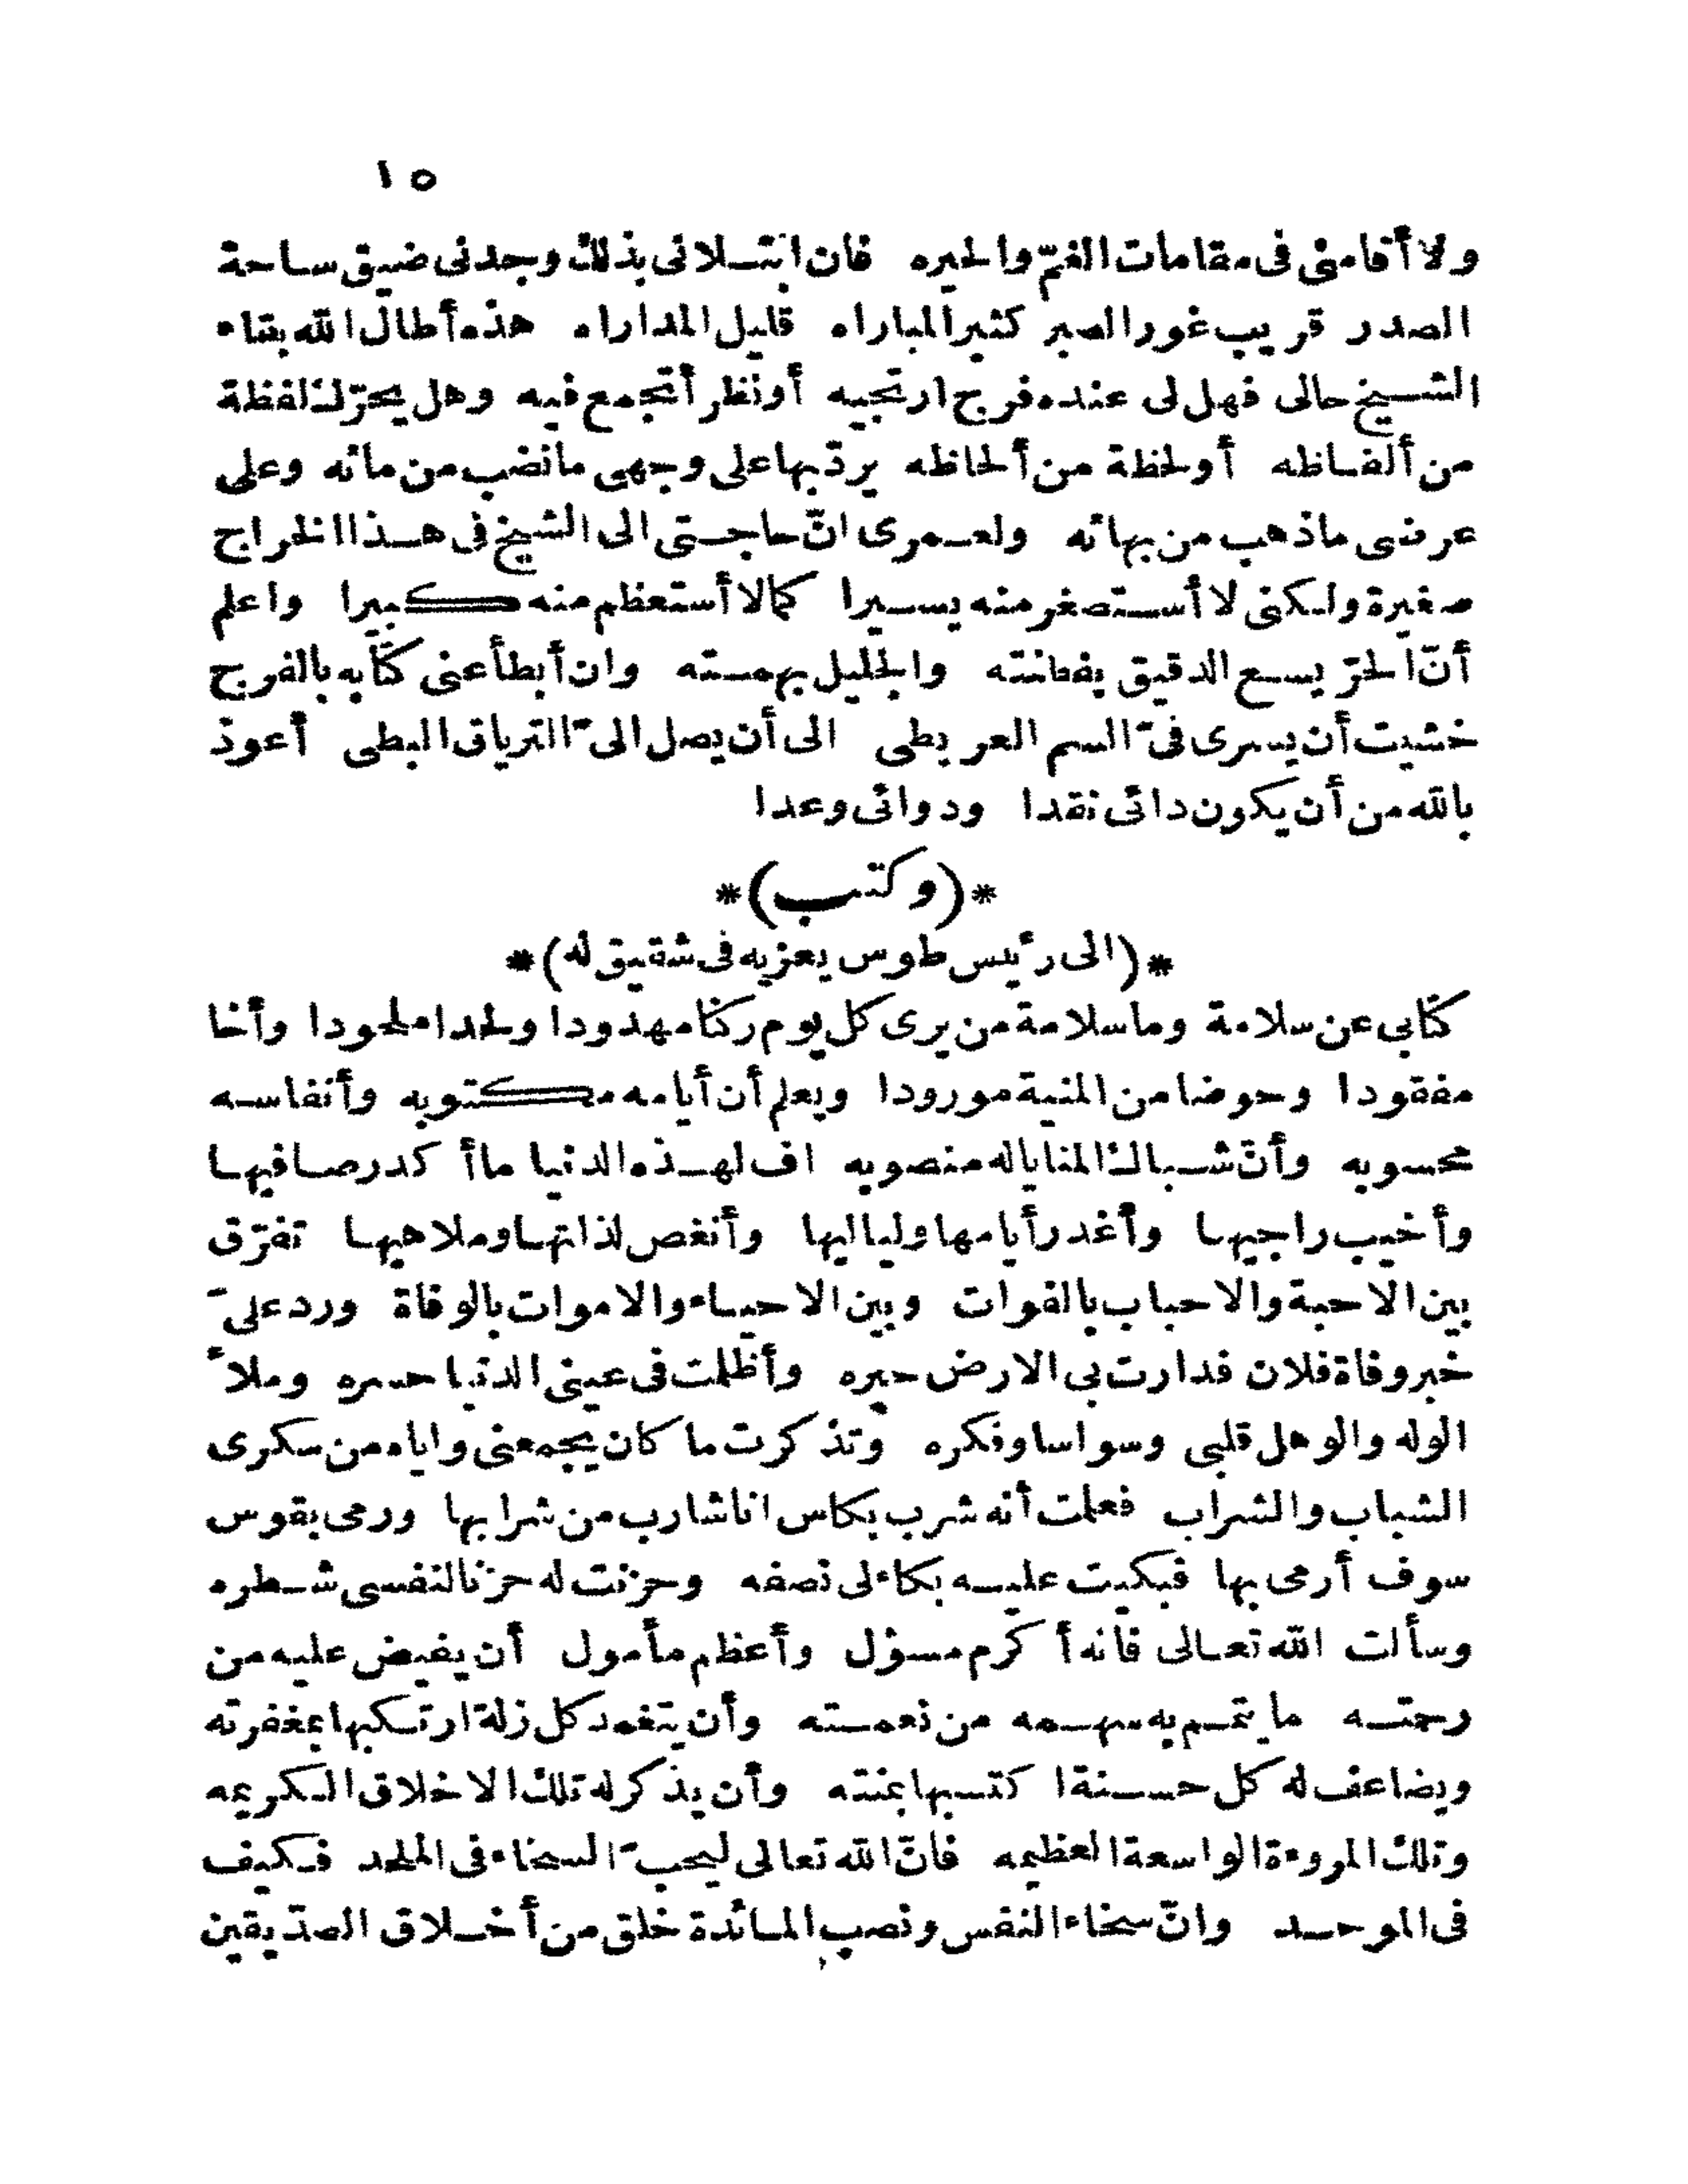 ١٥
ولا أقامنى فى مقامات الغمّ والحيره فان ابتلانى بذلك وجدنى ضيق ساحة
الصدر قريب غور الصبر كثير المباراه قليل المداراه هذه أطال الله بقاء
الشيخ حالى فهل لى عنده فرج ارتجيه أو نظر أتجمع فيه وهل يحرّك لفظة
من ألفاظه أو لحظة من ألحاظه يردّ بها على وجهى ما نضب من مائه وعلى
عرضى ما ذهب من بهائه ولعمرى انّ حاجتى الى الشيخ فى هذا الخراج
صغيرة ولكنى لا أستصغر منه يسيرا كما لا أستعظم منه كبيرا واعلم
أنّ الحرّ يسع الدقيق بفطنته والجليل بهمته وان أبطأ عنى كتابه بالفرج
خشيت أن يسرى فىّ السم العربطى الى أن يصل الىّ الترياق البطى أعوذ
بالله من أن يكون دائى نقدا ودوائى وعدا
*(وكتب)*
*(الى رئيس طوس يعزيه فى شقيق له)*
كتابى عن سلامة وما سلامة من يرى كل يوم ركنا مهدودا ولحدا ملحودا وأخا
مفقودا وحوضا من المنية مورودا ويعلم أن أيامه مكتوبه وأنفاسه
محسوبه وأنّ شباك المنايا له منصوبه اف لهذه الدنيا ما أكدر صافيها
وأخيب راجيها وأغدر أيامها ولياليها وأنغص لذاتها وملاهيها تفرّق
بين الاحبة والاحباب بالفوات وبين الاحياء والاموات بالوفاة ورد علىّ
خبر وفاة فلان فدارت بى الارض حيره وأظلمت فى عينى الدنيا حسره وملأ
الوله والوهل قلبى وسواسا وفكره وتذكرت ما كان يجمعنى واياه من سكرى
الشباب والشراب فعلمت أنه شرب بكاس انا شارب من شرابها ورمى بقوس
سوف أرمى بها فبكيت عليه بكاء لى نصفه وحزنت له حزنا لنفسى شطره
وسألت الله تعالى فانه أكرم مسؤل وأعظم مأمول أن يفيض عليه من
رحمته ما يتم به سهمه من نعمته وأن يتغمد كل زلة ارتكبها بمغفرته
ويضاعف له كل حسنة اكتسبها بمنته وأن يذكر له تلك الاخلاق الكريمه
وتلك المروءة الواسعة العظيمه فانّ الله تعالى ليحبّ السخاء فى الملحد فكيف
فى الموحد وانّ سخاء النفس ونصب المائدة خلق من أخلاق الصدّيقين